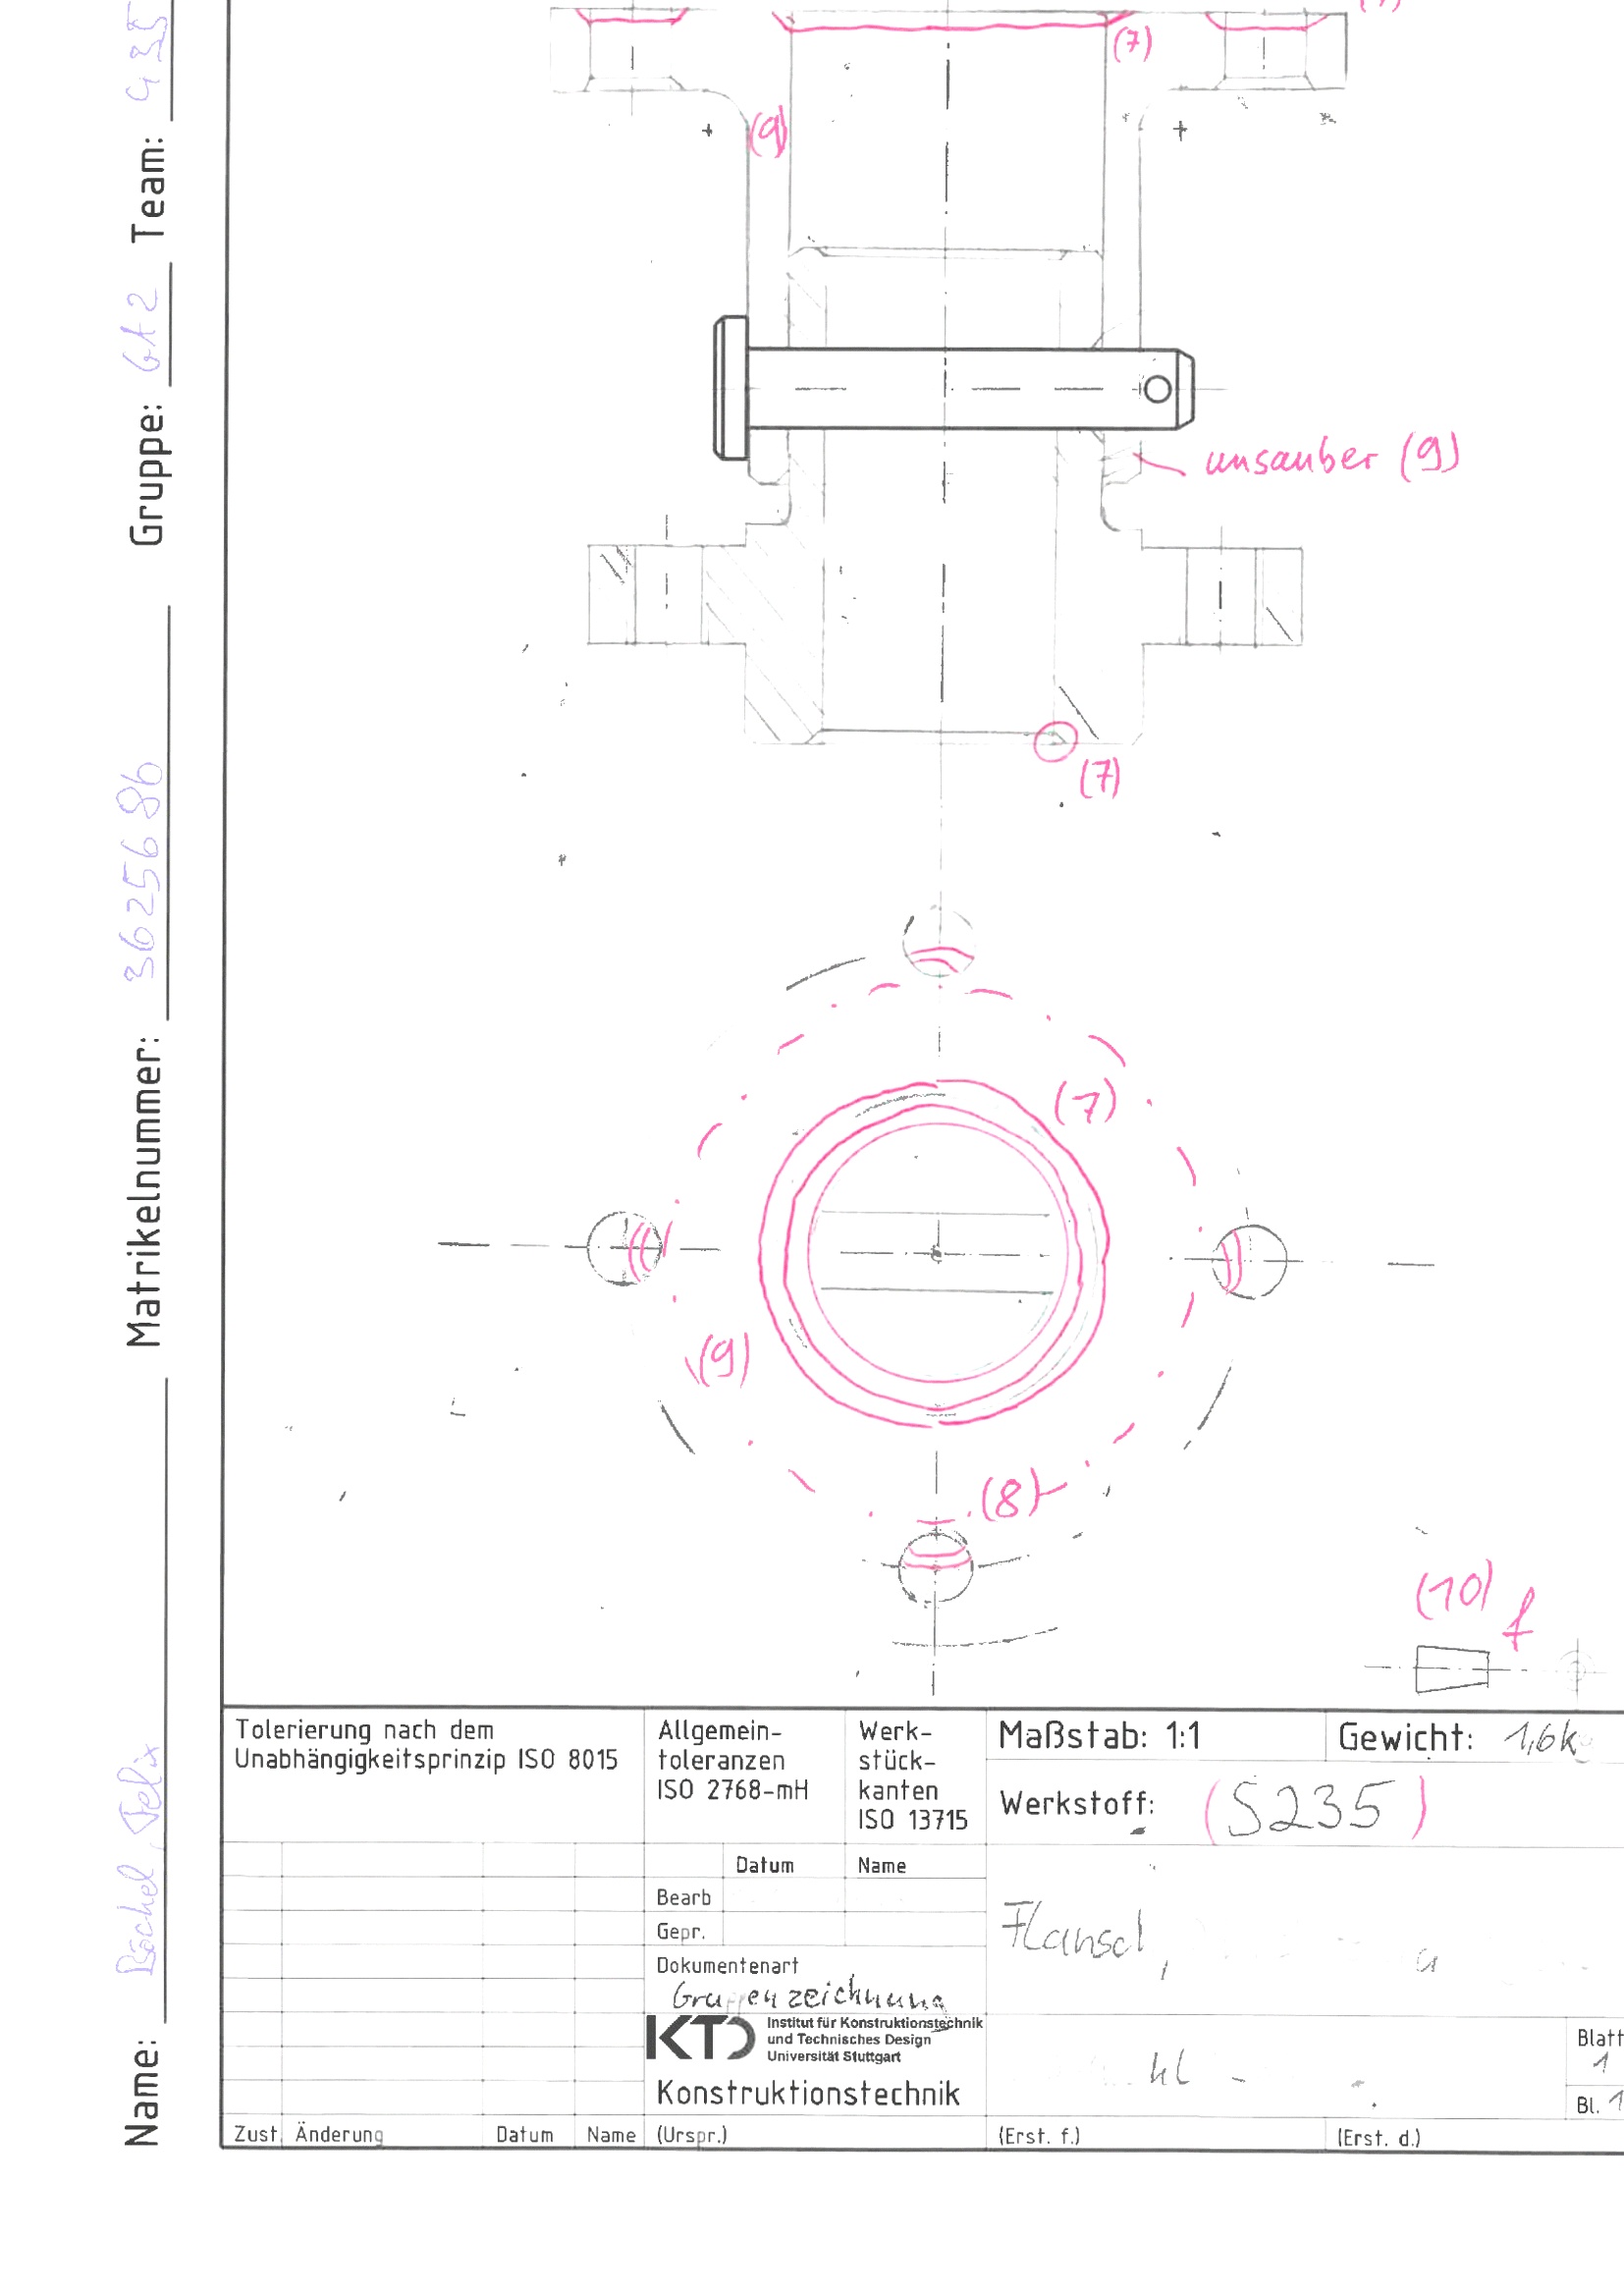 (7)
(9)
unsauber (9)
(7)
(7)
(9)
(8)
(10) f
Name:
Matrikelnummer: 3625686
Gruppe: GA2 Team: 435
Tolerierung nach dem
Unabhängigkeitsprinzip ISO 8015
Allgemein-
toleranzen
ISO 2768-mH
Werk-
stück-
kanten
ISO 13715
Maßstab: 1:1
Gewicht: 1,6k
Werkstoff: (S235)
Datum
Name
Bearb
Gepr.
Dokumentenart
Gruppenzeichnung
KTD
Institut für Konstruktionstechnik
und Technisches Design
Universität Stuttgart
Konstruktionstechnik
Blatt
1
Bl. 1
Zust. Änderung Datum Name (Urspr.) (Erst. f.) (Erst. d.)